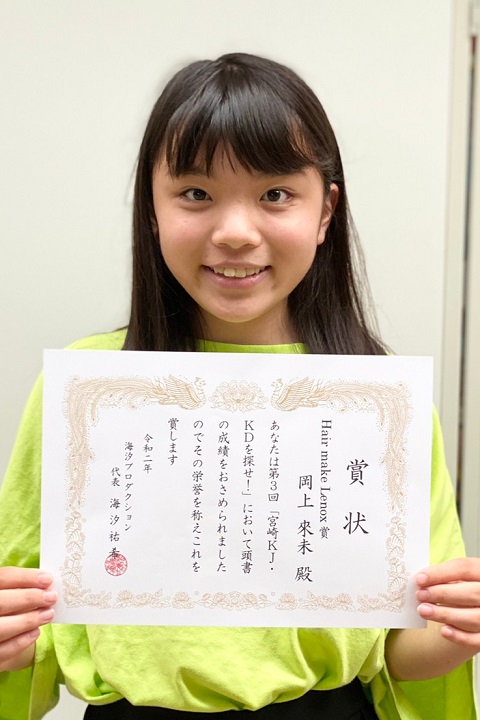 賞状
Hair make Lenox 賞
岡上 來未 殿
あなたは第3回「宮崎KJ・
KDを探せ!」において頭書
の成績をおさめられました
のでその栄誉を称えこれを
賞します
令和二年
海汐プロダクション
代表 海汐祐希